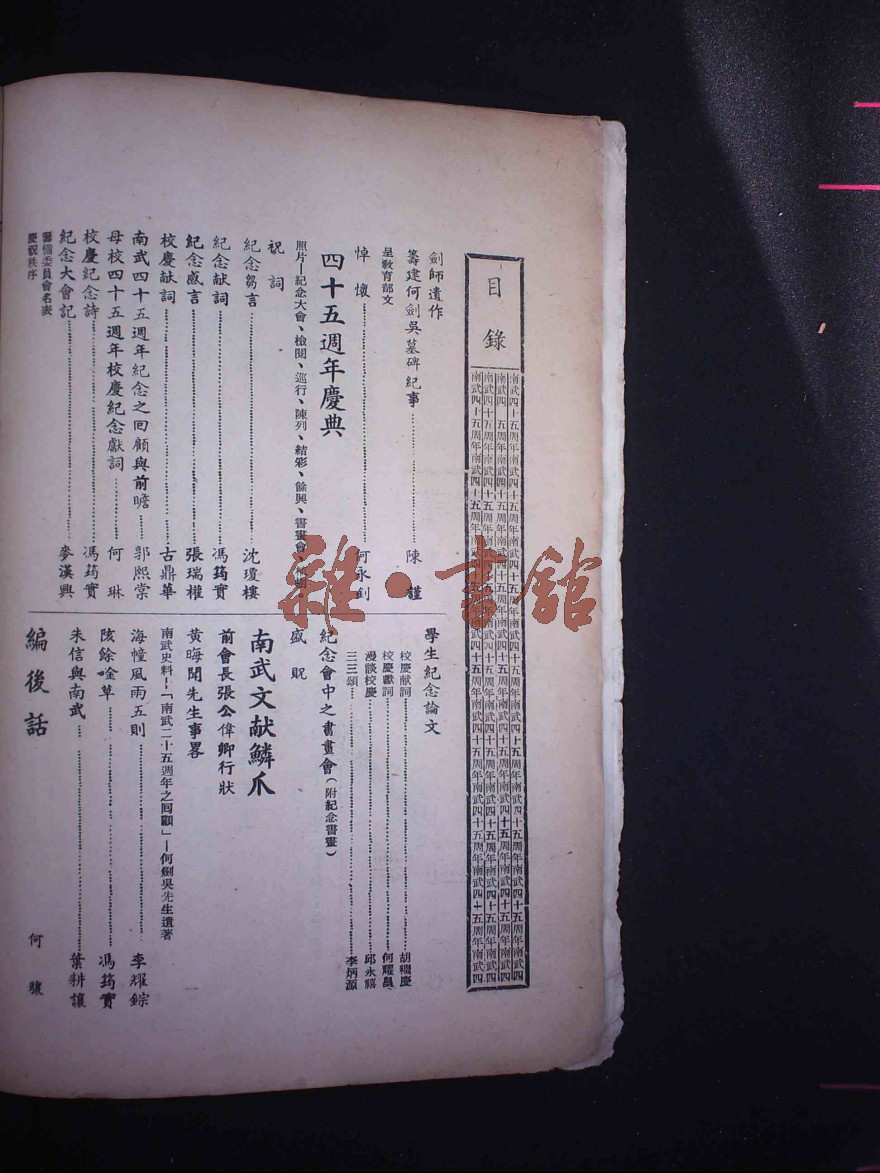 目錄
南武四十五周年南武四十五周年南武四十五周年南武四十五周年南武四十五周年南武四十五周年南武四十五周年南武四
劍師遺作
籌建何劍吳墓碑紀事……陳 謹
呈敎育部文
悼 懷……何永釗
四十五週年慶典
照片—紀念大會、檢閱、巡行、陳列、結彩、餘興、書畫會、
祝 詞
紀念芻言……沈瓊樓
紀念献詞……馮筠實
紀念感言……張瑞權
校慶献詞……古鼎華
南武四十五週年紀念之回顧與前瞻……郭熙棠
母校四十五週年校慶紀念獻詞……何 琳
校慶紀念詩……馮筠實
紀念大會記……麥漢興
籌備委員會名表
慶祝秩序
學生紀念論文
校慶献詞……胡 慶
校慶獻詞……何耀
漫談校慶……邱永禧
三三頌……李炳源
紀念會中之書畫會(附紀念書畫)
盛 貺
南武文献鱗爪
前會長張公偉卿行狀
黃晦聞先生事畧
南武史料—「南武二十五週年之囘顧」—何劍吳先生遺著
海幢風雨五則……李耀錝
陔餘唫草……馮筠實
朱信與南武……葉耕讓
編後話 何 驤
雜·書館